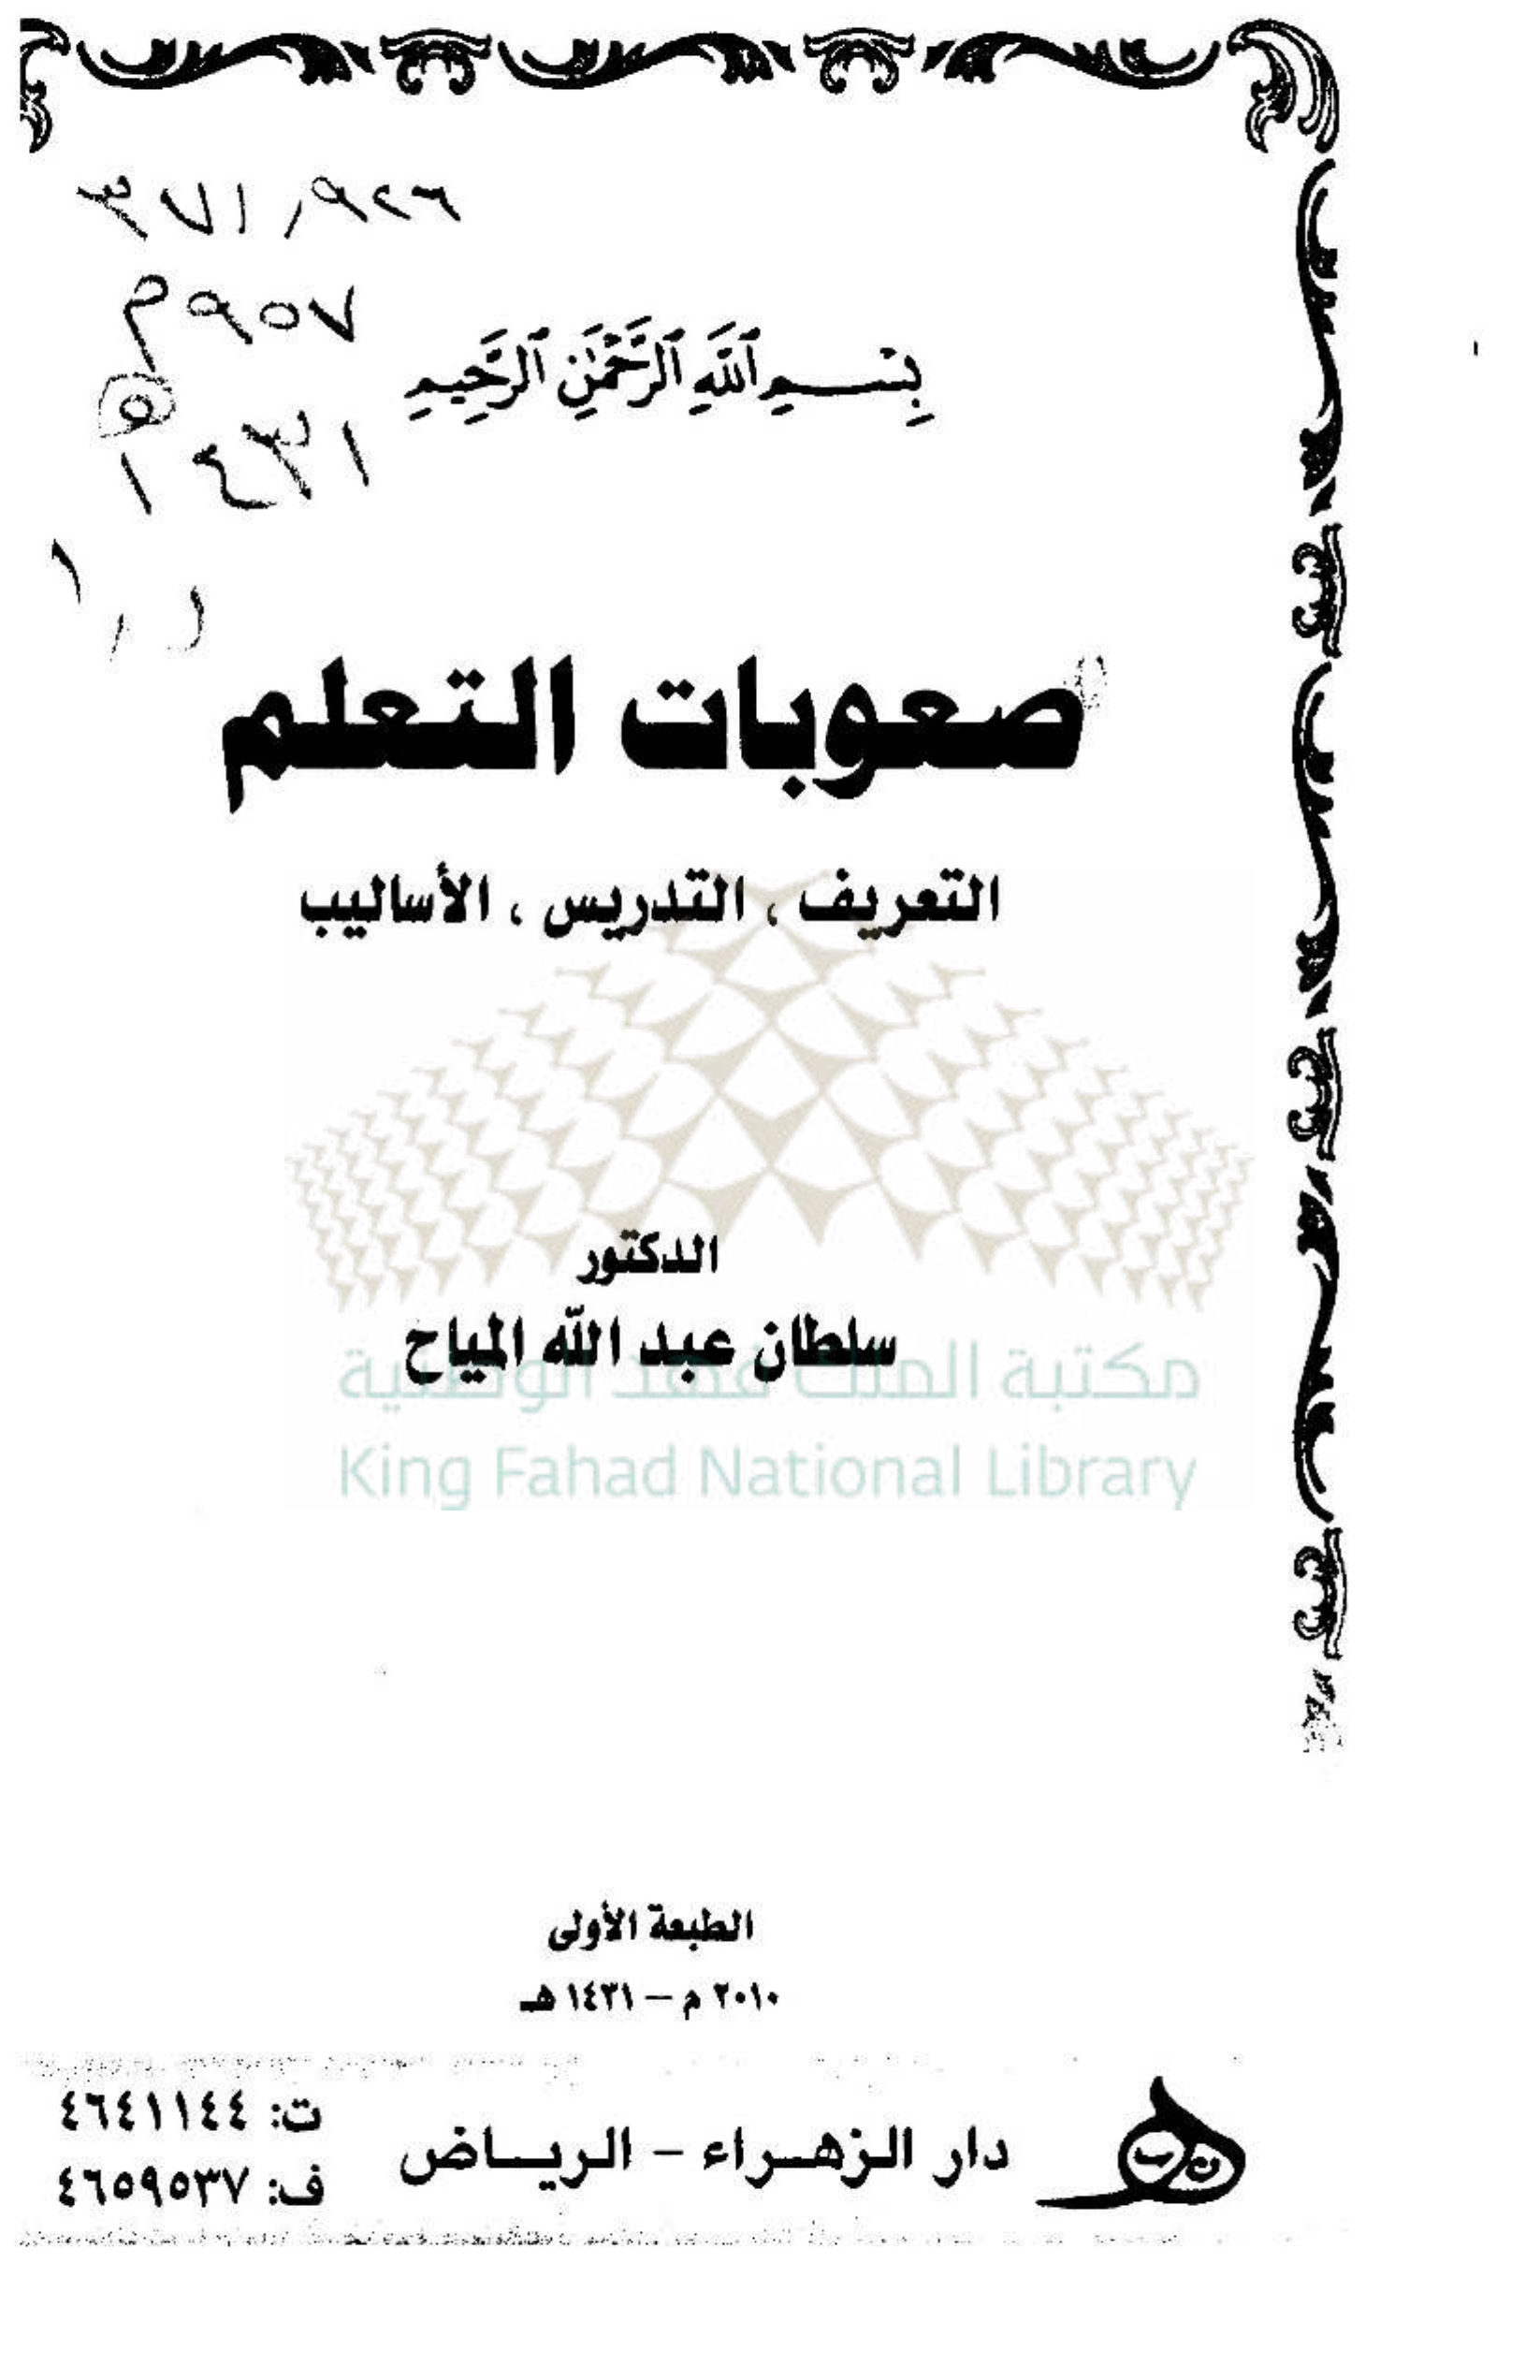 ٣٧١٫٩٢٦
م٩٥٧
١٤٣١
بِسْمِ ٱللَّهِ ٱلرَّحْمَٰنِ ٱلرَّحِيمِ
صعوبات التعلم
التعريف ، التدريس ، الأساليب
الدكتور
سلطان عبد اللّه المياح
مكتبة الملك فهد الوطنية
King Fahad National Library
الطبعة الأولى
٢٠١٠ م – ١٤٣١ هـ
دار الزهراء – الرياض
ت: ٤٦٤١١٤٤
ف: ٤٦٥٩٥٣٧